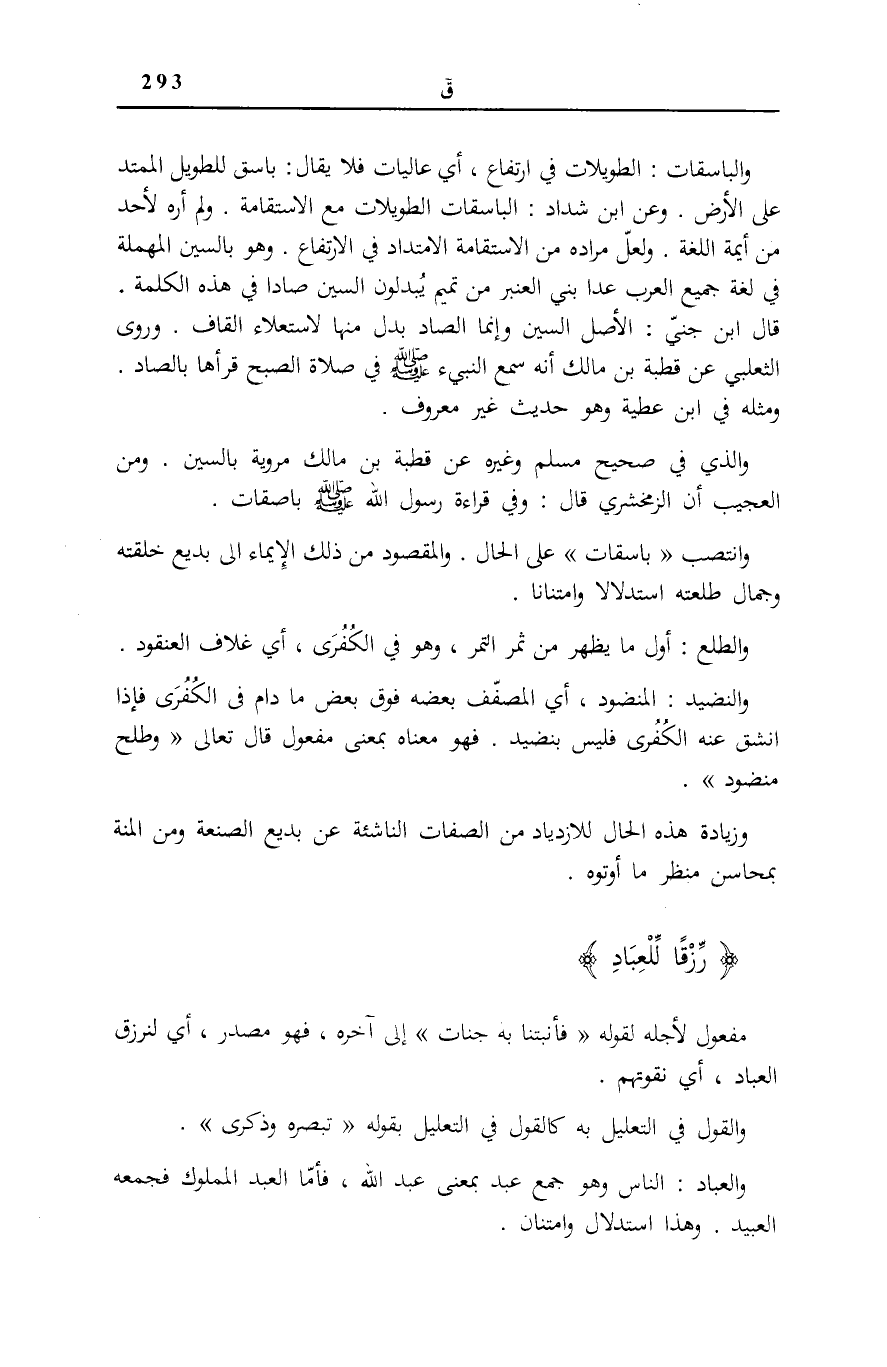 293
قۤ
والباسقات : الطويلات في ارتفاع ، أي عاليات فلا يقال : باسق للطويل الممتد
على الأرض . وعن ابن شداد : الباسقات الطويلات مع الاستقامة . ولم أره لأحد
من أيمة اللغة . ولعلّ مراده من الاستقامة الامتداد في الارتفاع . وهو بالسين المهملة
في لغة جميع العرب عدا بني العنبر من تميم يُبدلون السين صادا في هذه الكلمة .
قال ابن جنيّ : الأصل السين وإنما الصاد بدل منها لاستعلاء القاف . وروى
الثعلبي عن قطبة بن مالك أنه سمع النبيء ﷺ في صلاة الصبح قرأها بالصاد .
ومثله في ابن عطية وهو حديث غير معروف .
والذي في صحيح مسلم وغيره عن قطبة بن مالك مروية بالسين . ومن
العجيب أن الزمخشري قال : وفي قراءة رسول الله ﷺ باصقات .
وانتصب « باسقات » على الحال . والمقصود من ذلك الإيماء الى بديع خلقته
وجمال طلعته استدلالا وامتنانا .
والطلع : أول ما يظهر من ثمر التمر ، وهو في الكُفُرَى ، أي غلاف العنقود .
والنضيد : المنضود ، أي المصفّف بعضه فوق بعض ما دام فى الكُفُرَى فإذا
انشق عنه الكُفُرى فليس بنضيد . فهو معناه بمعنى مفعول قال تعالى « وطلح
منضود » .
وزيادة هذه الحال للازدياد من الصفات الناشئة عن بديع الصنعة ومن المنة
بمحاسن منظر ما أوتوه .
﴿ رِّزْقًا لِّلْعِبَادِ ﴾
مفعول لأجله لقوله « فأنبتنا به جنات » إلى آخره ، فهو مصدر ، أي لنرزق
العباد ، أي نقوتهم .
والقول في التعليل به كالقول في التعليل بقوله « تبصره وذكرى » .
والعباد : الناس وهو جمع عبد بمعنى عبد الله ، فأمّا العبد المملوك فجمعه
العبيد . وهذا استدلال وامتنان .